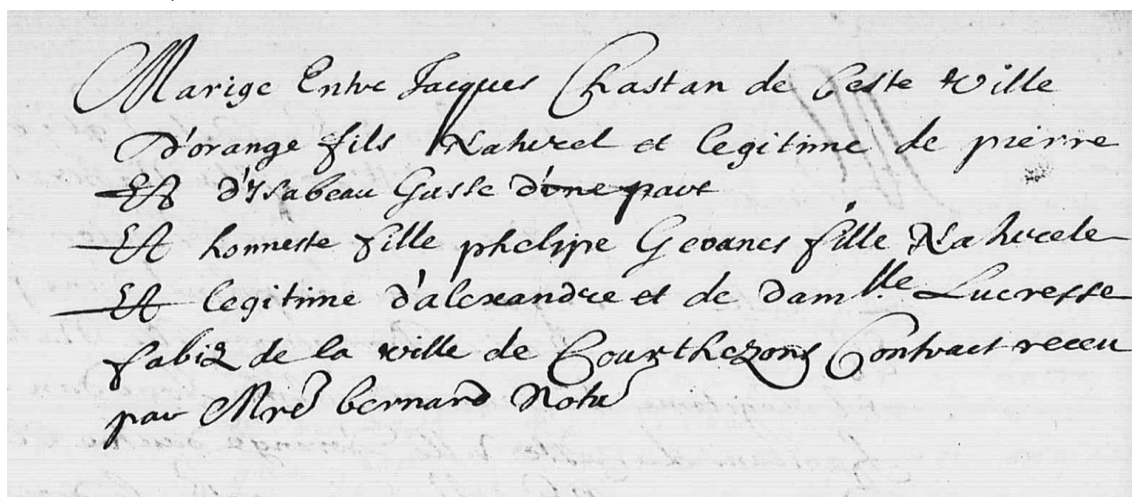 Marige Entre Jacques Chastan de Ceste Ville
D'orange fils Naturel et legitime de pierre
Et d'Isabeau Gasse d'une part
Et honneste fille phelipe Gevanes fille Naturele
Et legitime d'alexandre et de damlle Lucresse
fabiz de la ville de Courthezons Contract receu
par Mre bernard Notre